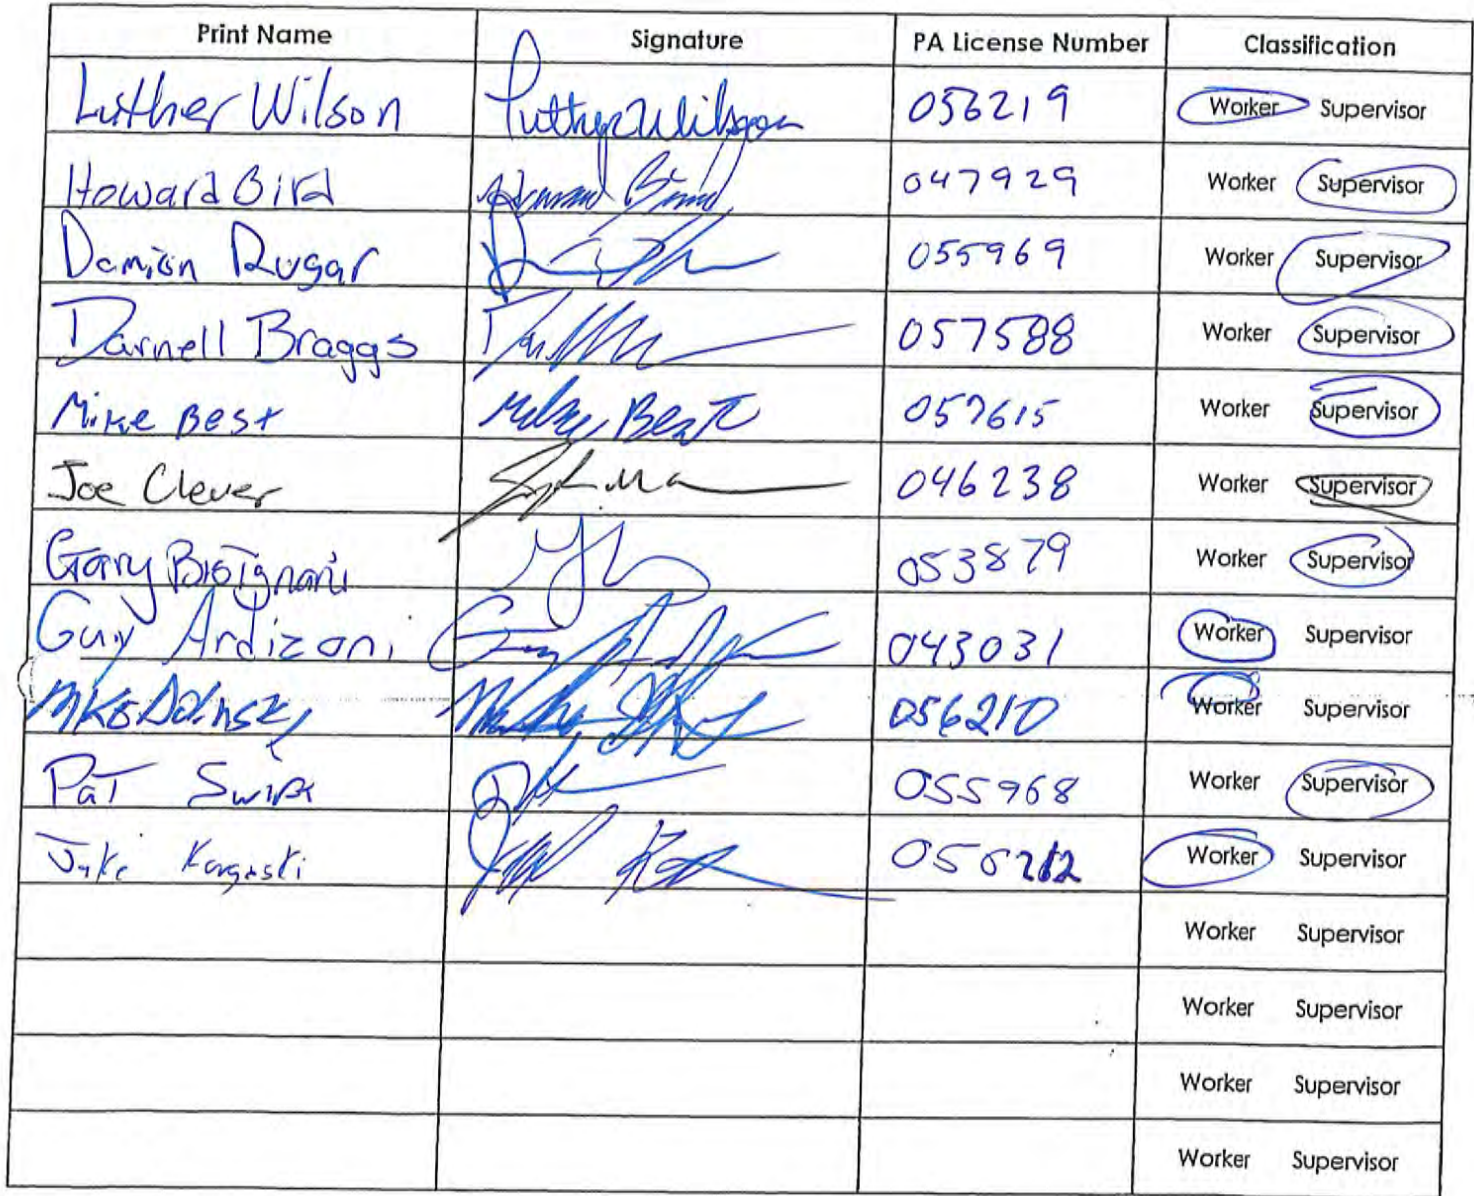 Print Name Signature PA License Number Classification
Luther Wilson Luther Wilson 056219 Worker Supervisor
Howard Bird Howard Bird 047929 Worker Supervisor
Damion Rugar 055969 Worker Supervisor
Darnell Braggs 057588 Worker Supervisor
Mike Best Best 057615 Worker Supervisor
Joe Clever 046238 Worker Supervisor
Gary 053879 Worker Supervisor
Guy Ardizoni 043031 Worker Supervisor
056210 Worker Supervisor
Pat Swift 055968 Worker Supervisor
Jake Worker Supervisor
Worker Supervisor
Worker Supervisor
Worker Supervisor
Worker Supervisor